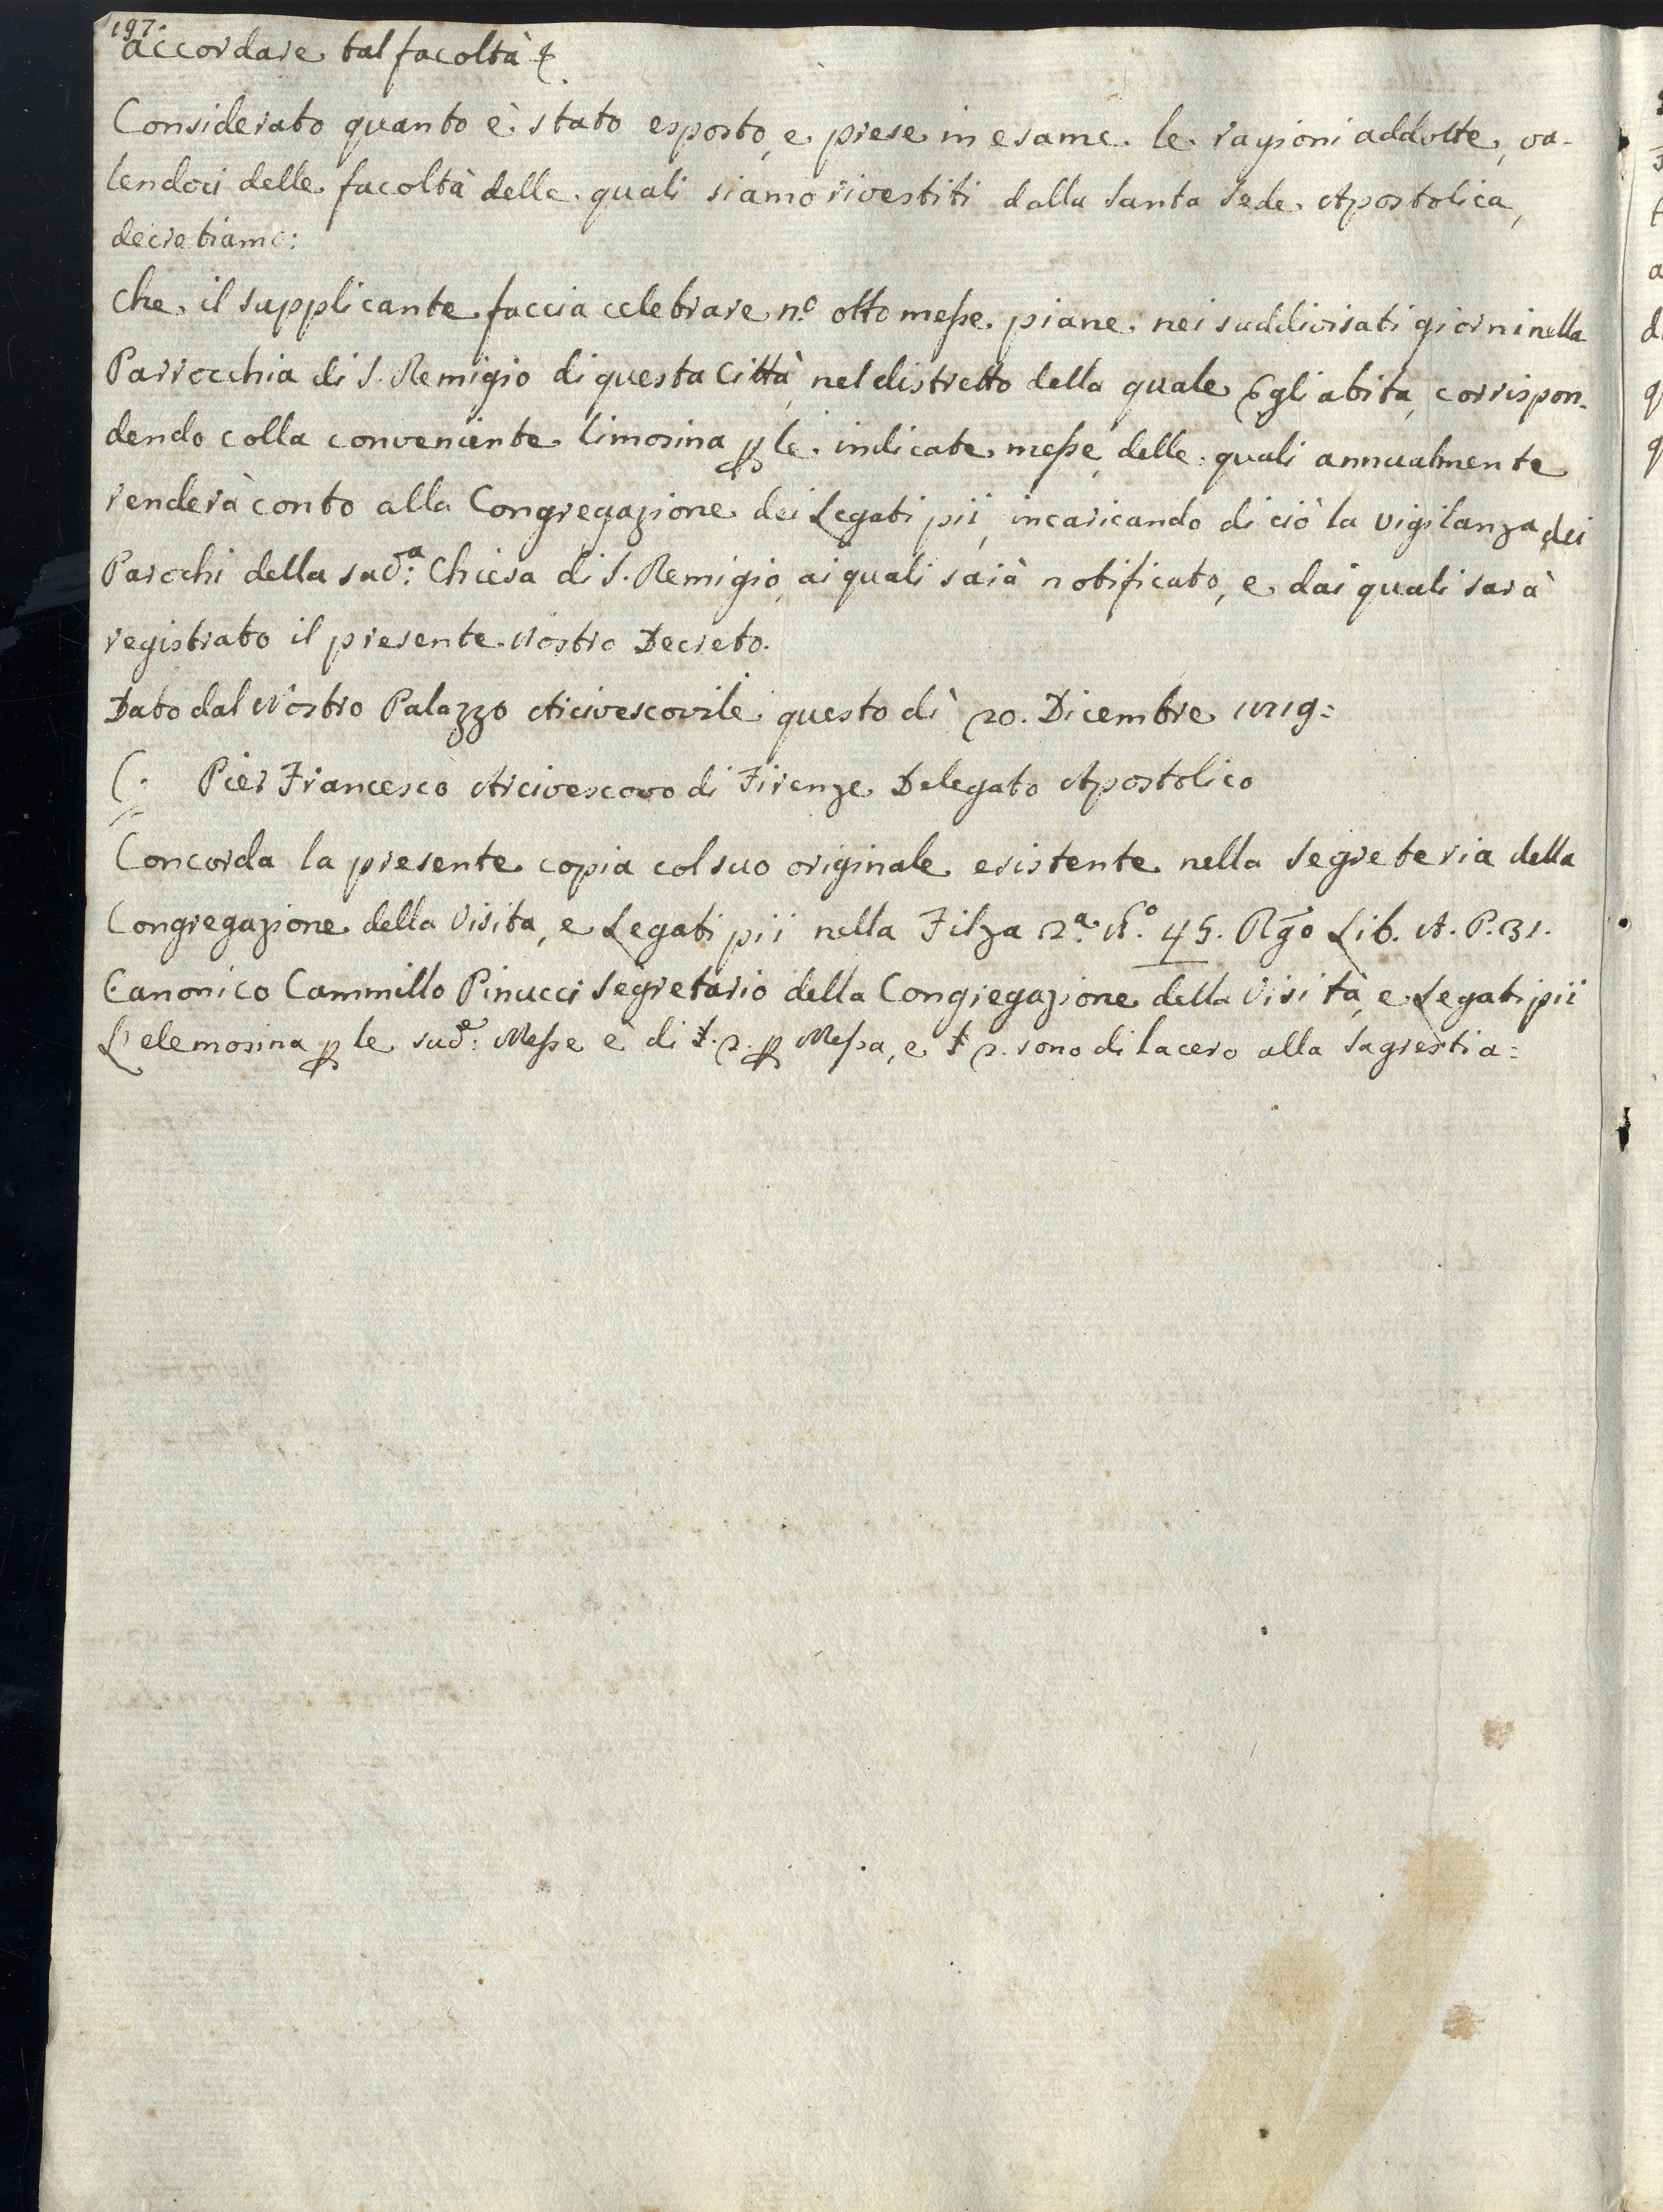 197.
accordare tal facoltà &.
Considerato quanto è stato esposto, e prese in esame le ragioni addotte, va-
lendoci delle facoltà delle quali siamo rivestiti dalla Santa Sede Apostolica,
decretiamo:
Che il supplicante faccia celebrare n.º otto messe piane nei suddivisati giorni nella
Parrocchia di S. Remigio di questa Città, nel distretto della quale Egli abita, corrispon-
dendo colla conveniente limosina p le indicate messe, delle quali annualmente
renderà conto alla Congregazione dei Legati pii, incaricando di ciò la vigilanza dei
Parochi della sud.ª Chiesa di S. Remigio, ai quali sarà notificato, e dai quali sarà
registrato il presente Nostro Decreto.
Dato dal Nostro Palazzo Arcivescovile questo dì 20. Dicembre 1819=
Pier Francesco Arcivescovo di Firenze Delegato Apostolico
Concorda la presente copia col suo originale esistente nella Segreteria della
Congregazione della Visita, e Legati pii nella Filza 2.ª N.º 45. Rgo Lib. A. P. 31.
Canonico Cammillo Pinucci Segretario della Congregazione della Visita, e Legati pii
L'elemosina p le sud.e Messe è di £. 2. p Messa, e £ 2. sono di lacero alla Sagrestia=